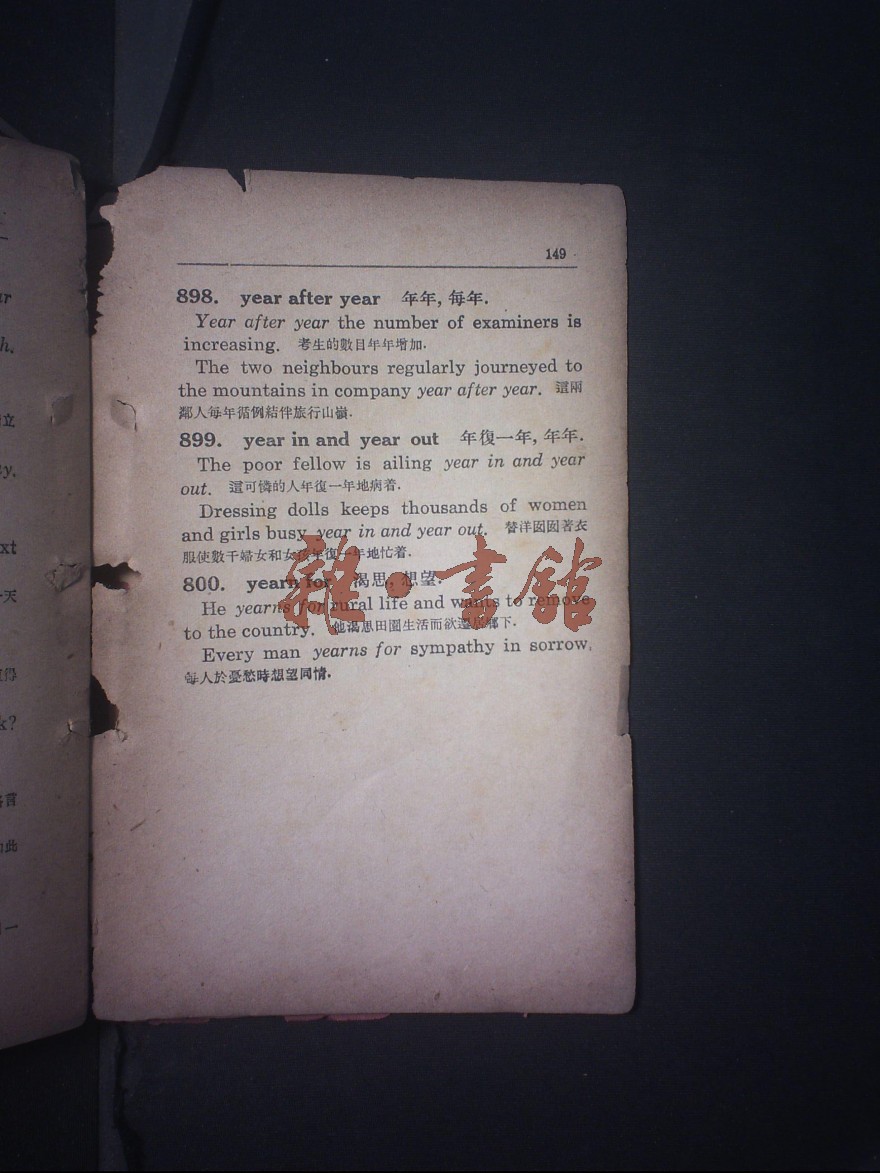 149
898. year after year 年年, 每年.
Year after year the number of examiners is
increasing. 考生的數目年年增加.
The two neighbours regularly journeyed to
the mountains in company year after year. 這兩
鄰人每年循例結伴旅行山嶺.
899. year in and year out 年復一年, 年年.
The poor fellow is ailing year in and year
out. 這可憐的人年復一年地病着.
Dressing dolls keeps thousands of women
and girls busy year in and year out. 替洋囡囡著衣
服使數千婦女和女孩年復一年地忙着.
800. yearn for 渴思, 想望.
He yearns for rural life and wants to remove
to the country. 他渴思田園生活而欲遷居鄉下.
Every man yearns for sympathy in sorrow.
每人於憂愁時想望同情.
雜·書館
ar
h.
立
y.
xt
天
得
k?
言
此
一